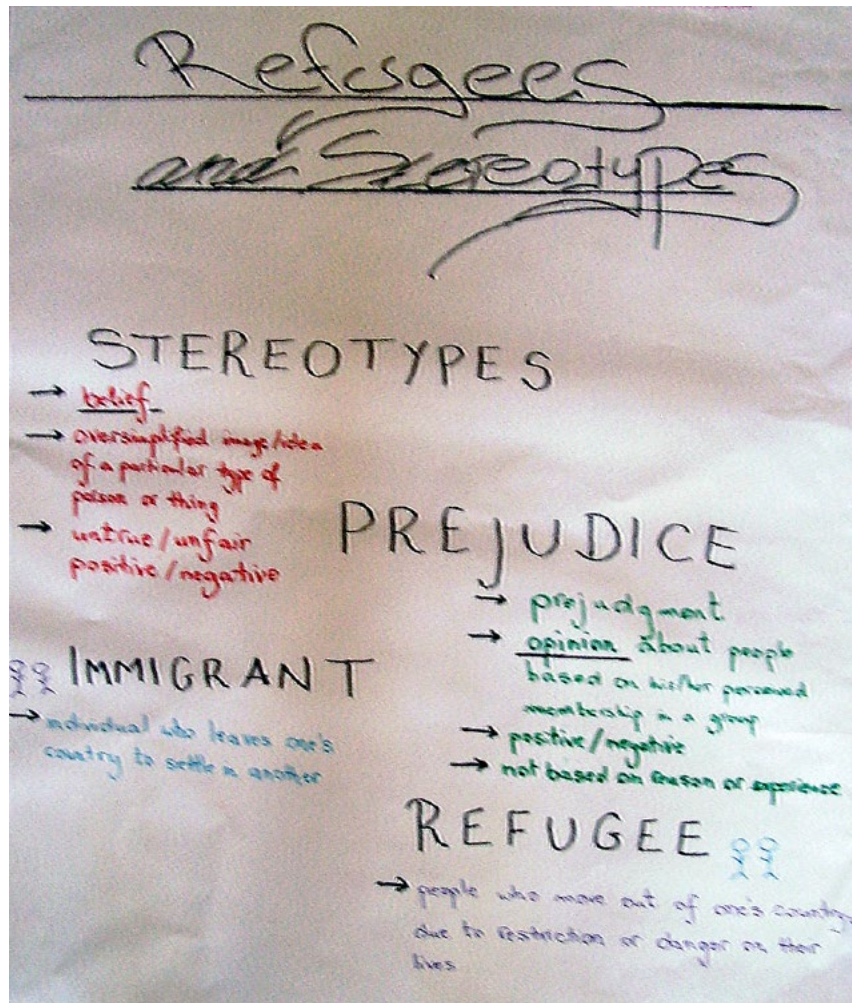 Refugees
and Stereotypes
STEREOTYPES
→ belief
→ oversimplified image/idea
of a particular type of
person or thing
→ untrue/unfair
positive/negative
PREJUDICE
→ prejudgment
→ opinion about people
based on his/her perceived
membership in a group
→ positive/negative
→ not based on reason or experience
IMMIGRANT
→ individual who leaves one's
country to settle in another
REFUGEE
→ people who move out of one's country
due to restriction or danger on their
lives